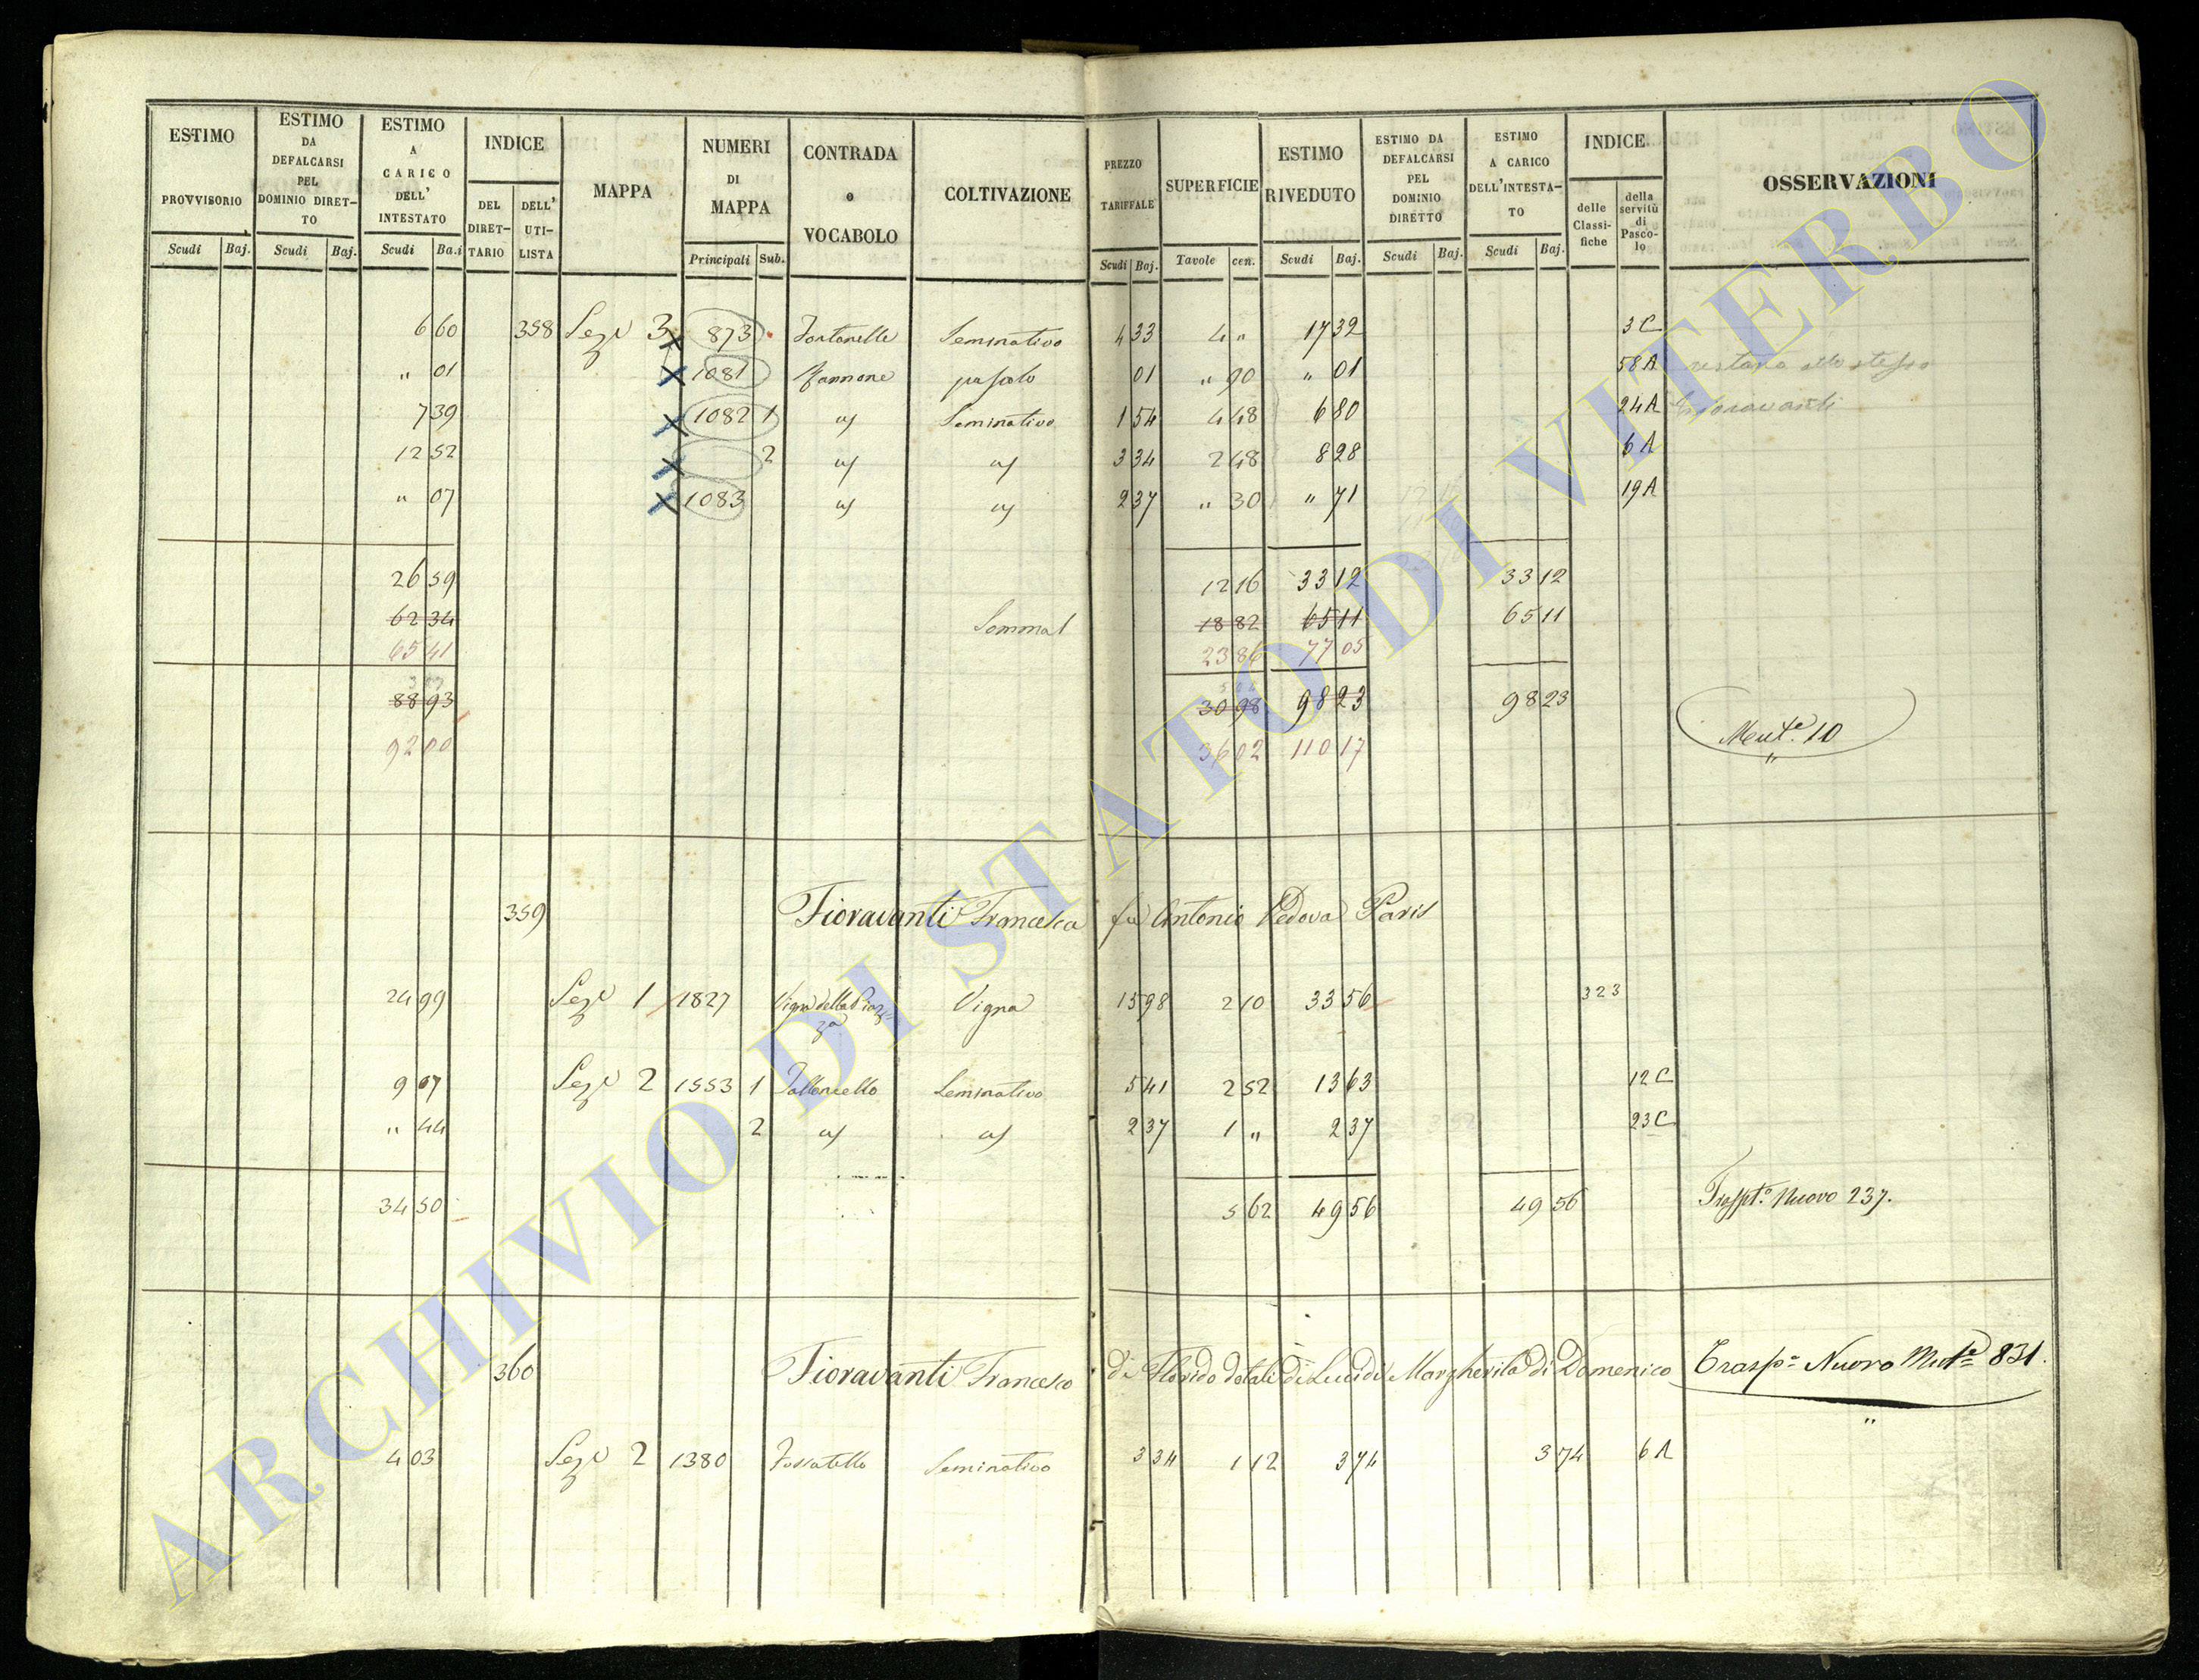 ESTIMO PROVVISORIO | ESTIMO DA DEFALCARSI PEL DOMINIO DIRET-TO | ESTIMO A CARICO DELL' INTESTATO | INDICE | MAPPA | NUMERI DI MAPPA | CONTRADA o VOCABOLO | COLTIVAZIONE | PREZZO TARIFFALE | SUPERFICIE | ESTIMO RIVEDUTO | ESTIMO DA DEFALCARSI PEL DOMINIO DIRETTO | ESTIMO A CARICO DELL'INTESTA-TO | INDICE | OSSERVAZIONI
DEL DIRET-TARIO | DELL' UTI-LISTA | delle Classi-fiche | della servitù di Pasco-lo
Scudi Baj. | Scudi Baj. | Scudi Ba.i | Principali Sub. | Scudi Baj. | Tavole cen. | Scudi Baj. | Scudi Baj. | Scudi Baj.
6 60 358 Sezе 3 873 Seminativo 4 33 4 " 17 32 3 C
" 01 1081 pascolo 01 " 90 " 01 58 A
7 39 1082 1 Seminativo 1 54 4 48 6 80 24 A
12 52 2 3 34 2 48 8 28 6 A
" 07 1083 2 37 " 30 " 71 19 A
26 59 12 16 33 12 33 12
62 34 Somma 18 82 65 11 65 11
65 41 23 86 77 05
88 93 30 98 98 23 98 23
92 00 36 02 110 17 Mut.e 10
359 Fioravanti Francesca fu Antonio Vedova Paris
24 99 1 1827 Vigna della Piazza Vigna 15 98 2 10 33 56 323
9 07 2 1553 1 Seminativo 5 41 2 52 13 63 12 C
" 44 2 2 37 1 " 2 37 23 C
34 50 5 62 49 56 49 56 Traspt.o Nuovo 237.
360 Fioravanti Francesco di Florido dotali di Lucidi Margherita di Domenico Trasp.o Nuovo Mut.e 831.
4 03 2 1380 Fossatello Seminativo 3 34 1 12 3 74 3 74 6 A
ARCHIVIO DI STATO DI VITERBO